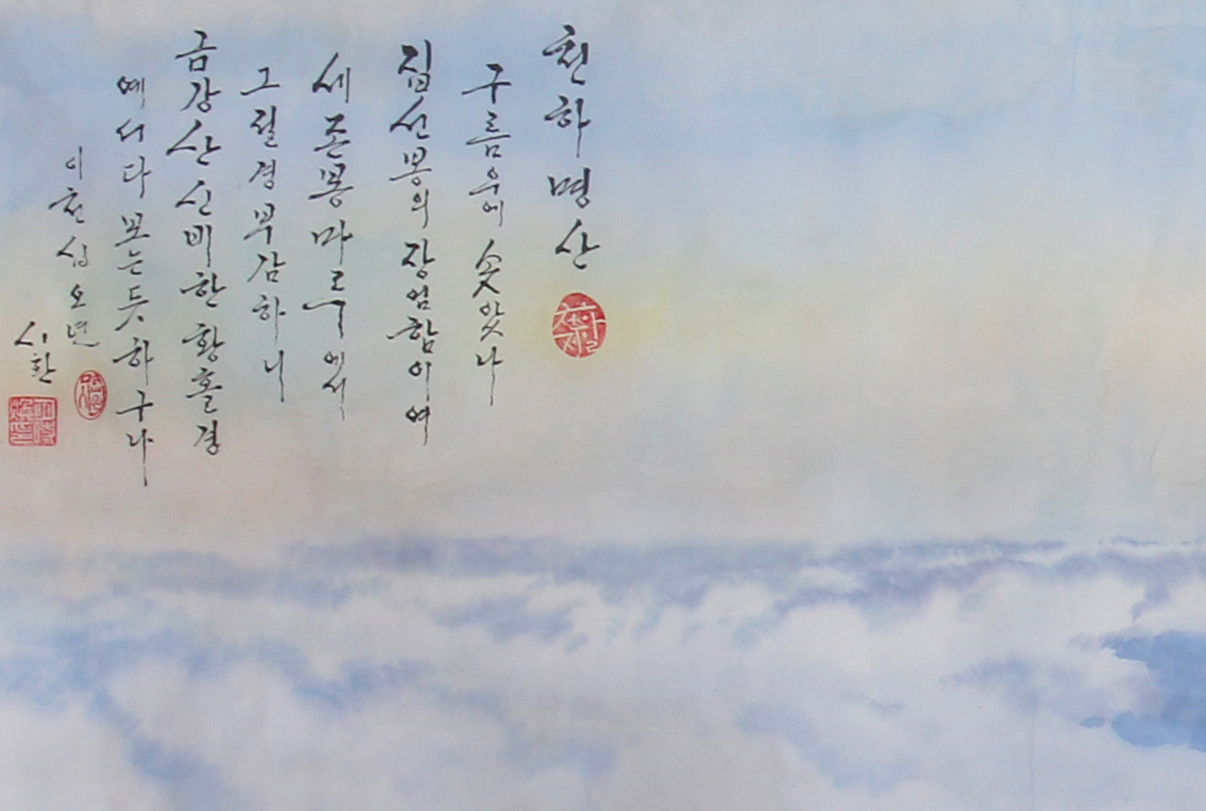 천하명산
구름우에 솟았나
집선봉의 장엄함이여
세존봉마루에서
그절경 부감하니
금강산 신비한 황홀경
예서 다 보는듯 하구나
이천십오년
시환